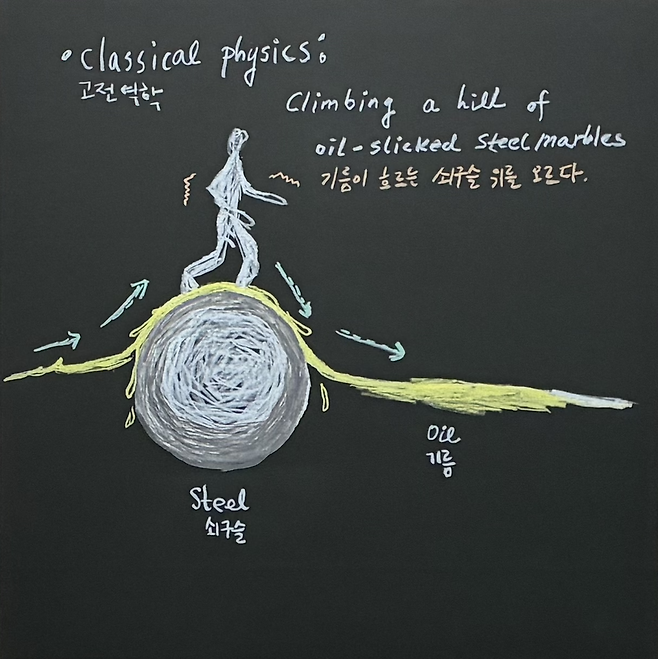 • Classical physics:
고전역학
Climbing a hill of
oil-slicked steel marbles
기름이 흐르는 쇠구슬 위를 오르다.
Oil
기름
Steel
쇠구슬